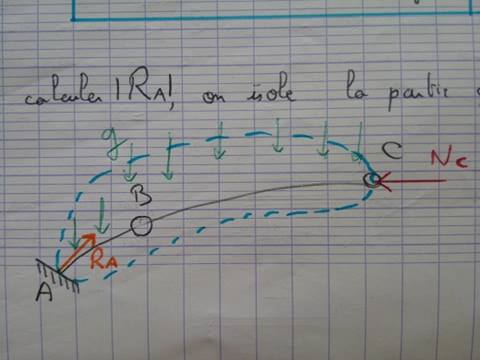 calculer |RA|, on isole la partie
g
B
C
Nc
RA
A